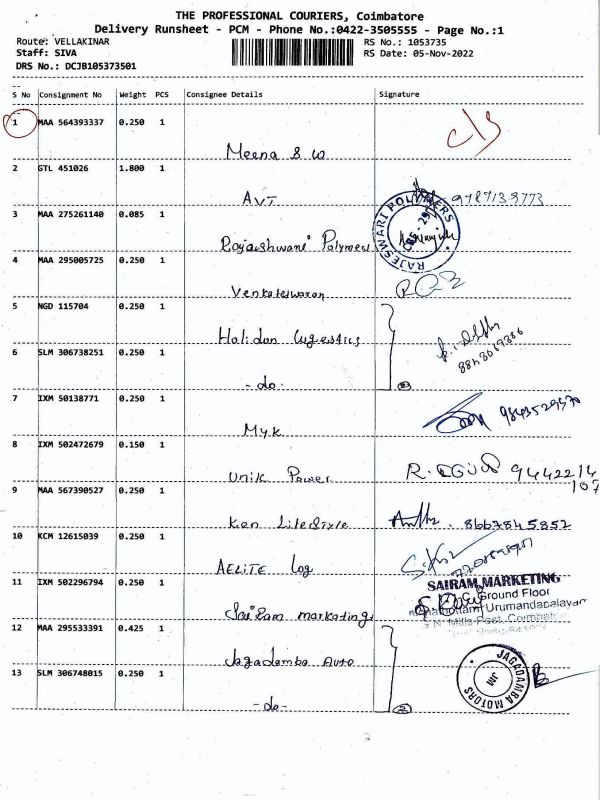 THE PROFESSIONAL COURIERS, Coimbatore
Delivery Runsheet - PCM - Phone No.:0422-3505555 - Page No.:1
Route: VELLAKINAR RS No.: 1053735
Staff: SIVA RS Date: 05-Nov-2022
DRS No.: DCJB105373501
S No Consignment No Weight PCS Consignee Details Signature
1 MAA 564393337 0.250 1
Meena S W
2 GTL 451026 1.800 1
AVT 9787139773
3 MAA 275261140 0.085 1
RAJESWARI POLYMERS
Rajaeshwari Polymers
4 MAA 295005725 0.250 1
Venkateswaran
5 NGD 115704 0.250 1
6 SLM 306738251 0.250 1
- do -
7 IXM 50138771 0.250 1
Myk
8 IXM 502472679 0.150 1
Unik Power 9442214
107
9 MAA 567390527 0.250 1
Ken LifeStyle 8667845852
10 KCM 12615039 0.250 1
AELITE Log
11 IXM 502296794 0.250 1
SAIRAM MARKETING
Ground Floor
Urumandapalayam
Sai Ram marketing
12 MAA 295533391 0.425 1
Jagadamba Auto
13 SLM 306748015 0.250 1
JAGADAMBA MOTORS
JM
- do -